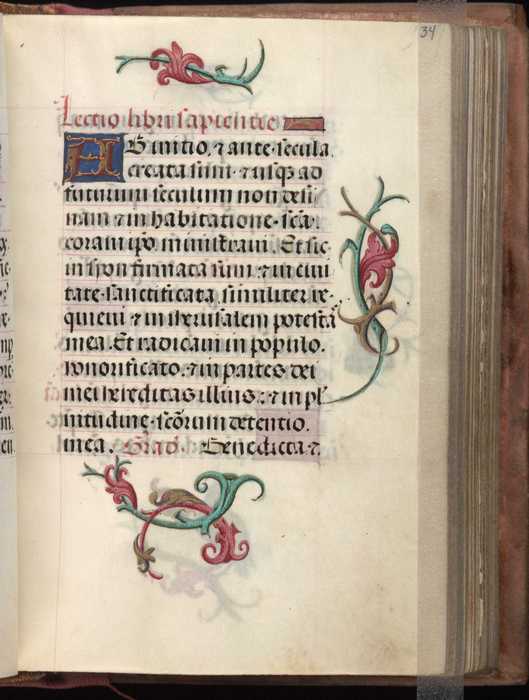 34
Lectio libri sapientie
AB initio, ⁊ ante secula.
creata sum. ⁊ usqꝫ ad
futurum seculum non desi
nam ⁊ in habitatione. scā.
coram ipō ministraui. Et sic
in syon firmata sum. ⁊ in ciui
tate. sanctificata, similiter re-
quieui ⁊ in iherusalem potestā
mea. Et radicaui in populo.
honorificato. ⁊ in partes dei
mei hereditas illius: ⁊ in pl
nitudine. scōrum detentio.
mea. Grad. Benedicta ⁊